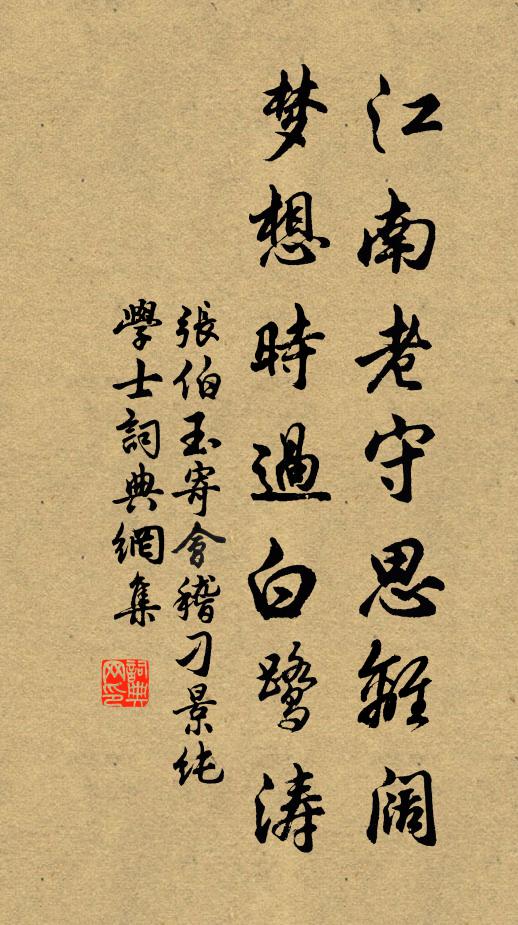 江南老守思離阔
梦想時過白鹭涛
張伯玉寄會稽刁景纯
學士詞典網集
詞典网印